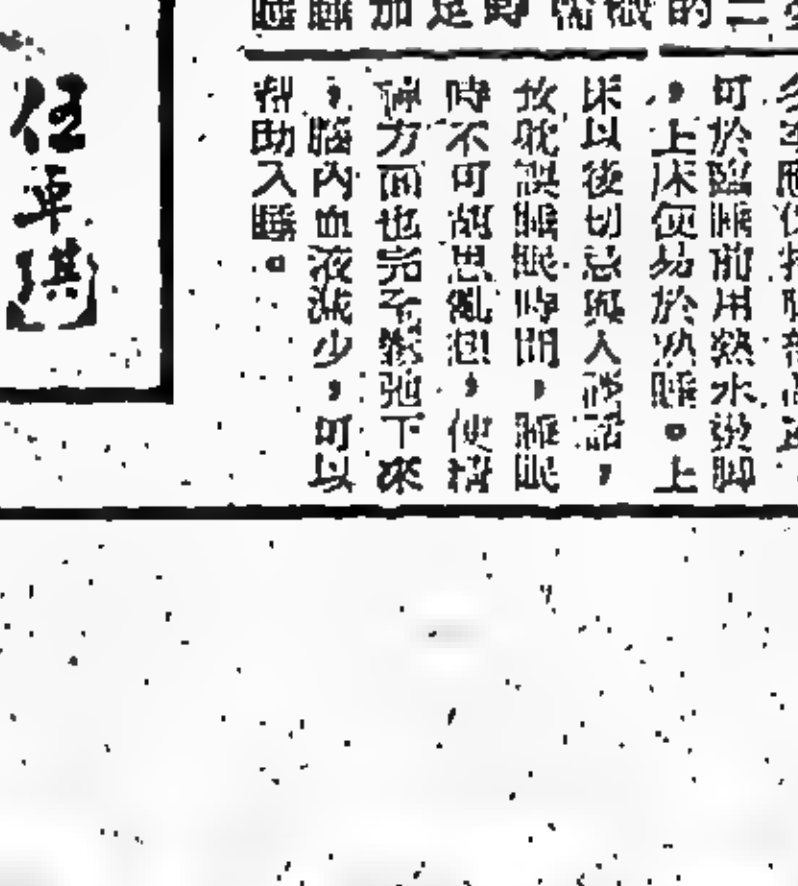 可於臨睡前用熱水燙脚
，上床便易於熟睡。上
床以後切忌與人談話，
致耽誤睡眠時間，睡眠
時不可胡思亂想，使精
神方面也完全鬆弛下來
，腦內血液減少，可以
幫助入睡。
任卓琪